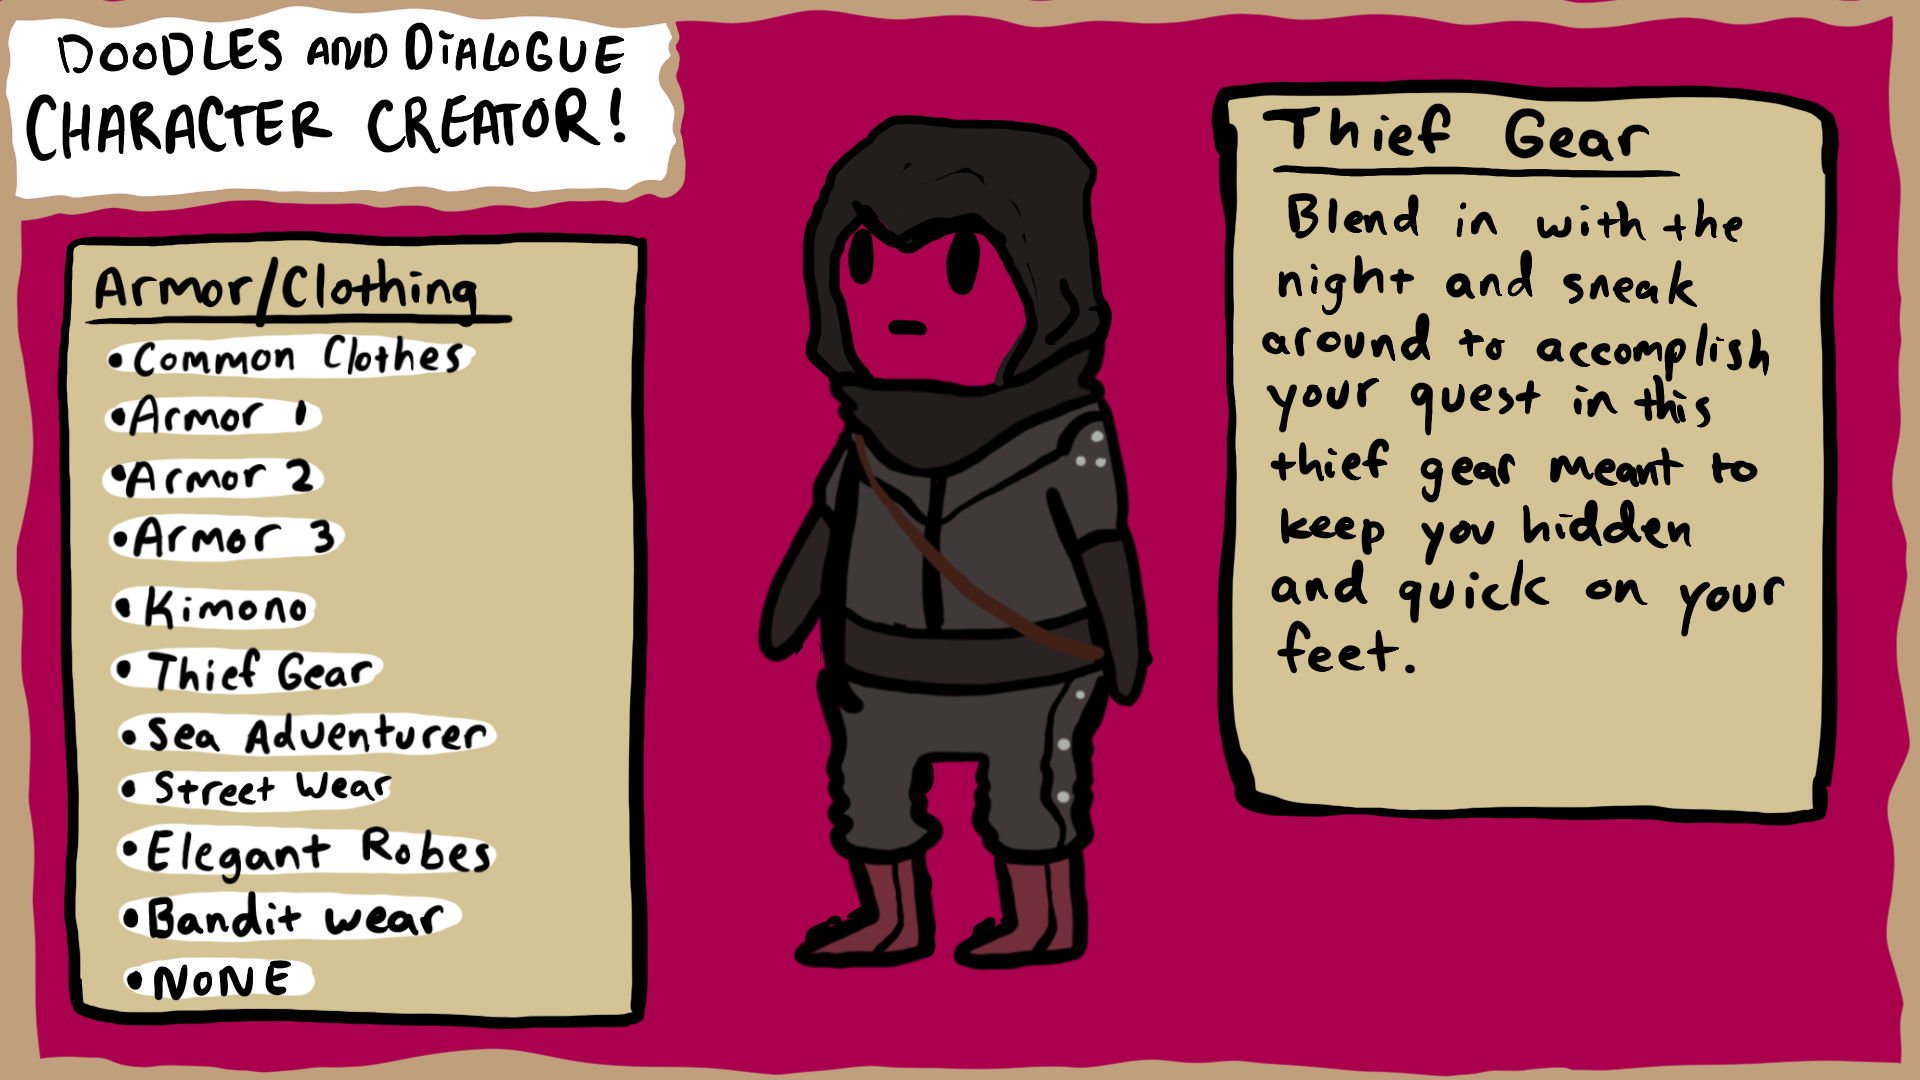 DOODLES AND DIALOGUE
CHARACTER CREATOR!
Armor/Clothing
• Common Clothes
• Armor 1
• Armor 2
• Armor 3
• Kimono
• Thief Gear
• Sea Adventurer
• Street Wear
• Elegant Robes
• Bandit wear
• NONE
Thief Gear
Blend in with the
night and sneak
around to accomplish
your quest in this
thief gear meant to
keep you hidden
and quick on your
feet.